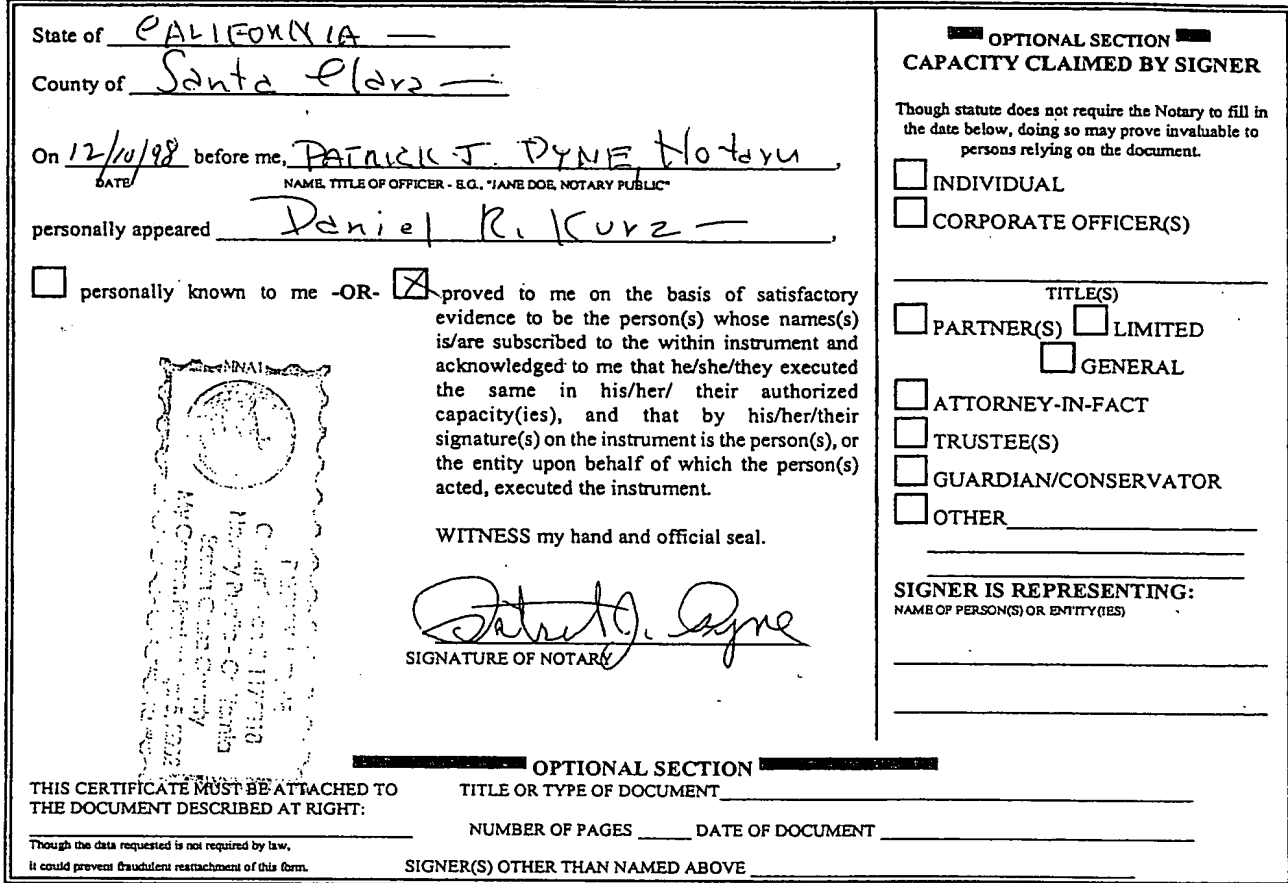 State of CALIFORNIA —
County of Santa Clara —
On 12/10/98 before me, PATRICK J. DYNE, Notary,
DATE NAME, TITLE OF OFFICER - E.G., "JANE DOE, NOTARY PUBLIC"
personally appeared Daniel R. Kurz —,
personally known to me -OR- proved to me on the basis of satisfactory
evidence to be the person(s) whose names(s)
is/are subscribed to the within instrument and
acknowledged to me that he/she/they executed
the same in his/her/ their authorized
capacity(ies), and that by his/her/their
signature(s) on the instrument is the person(s), or
the entity upon behalf of which the person(s)
acted, executed the instrument.
WITNESS my hand and official seal.
Patrick J. Dyne
SIGNATURE OF NOTARY
OPTIONAL SECTION
CAPACITY CLAIMED BY SIGNER
Though statute does not require the Notary to fill in
the date below, doing so may prove invaluable to
persons relying on the document.
INDIVIDUAL
CORPORATE OFFICER(S)
TITLE(S)
PARTNER(S) LIMITED
GENERAL
ATTORNEY-IN-FACT
TRUSTEE(S)
GUARDIAN/CONSERVATOR
OTHER
SIGNER IS REPRESENTING:
NAME OF PERSON(S) OR ENTITY(IES)
OPTIONAL SECTION
THIS CERTIFICATE MUST BE ATTACHED TO
THE DOCUMENT DESCRIBED AT RIGHT:
TITLE OR TYPE OF DOCUMENT
NUMBER OF PAGES DATE OF DOCUMENT
Though the data requested is not required by law,
it could prevent fraudulent reattachment of this form.
SIGNER(S) OTHER THAN NAMED ABOVE